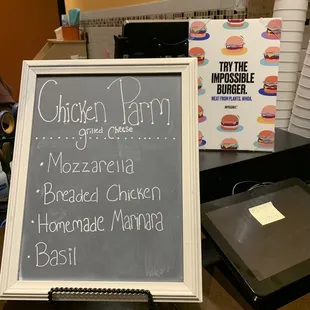 Chicken Parm
grilled Cheese
• Mozzarella
• Breaded Chicken
• Homemade Marinara
• Basil
TRY THE
IMPOSSIBLE
BURGER.
MEAT FROM PLANTS. WHOA.
IMPOSSIBLE